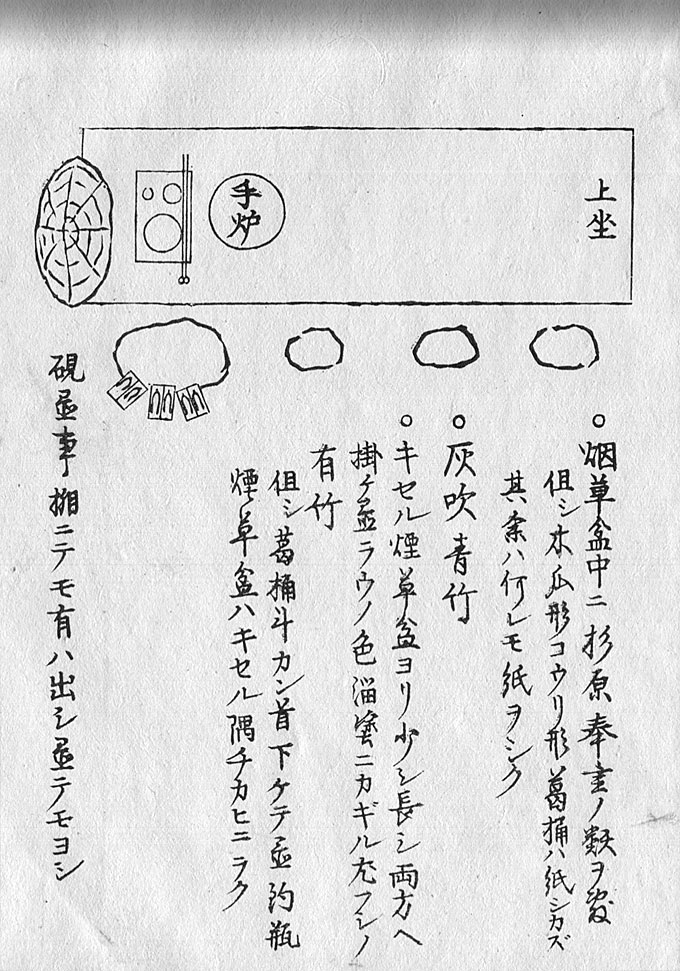 上坐
手炉
○烟草盆中ニ杉原奉書ノ類ヲ敷
但シ木瓜形コウリ形葛桶ハ紙シカズ
其余ハ何レモ紙ヲシク
○灰吹青竹
○キセル煙草盆ヨリ少シ長シ両方ヘ
掛ケ置ラウノ色溜塗ニカギル尤フシノ
有竹
但シ葛桶斗カン首下ケテ置釣瓶
煙草盆ハキセル隅チカヒニヲク
硯置事棚ニテモ有ハ出シ置テモヨシ